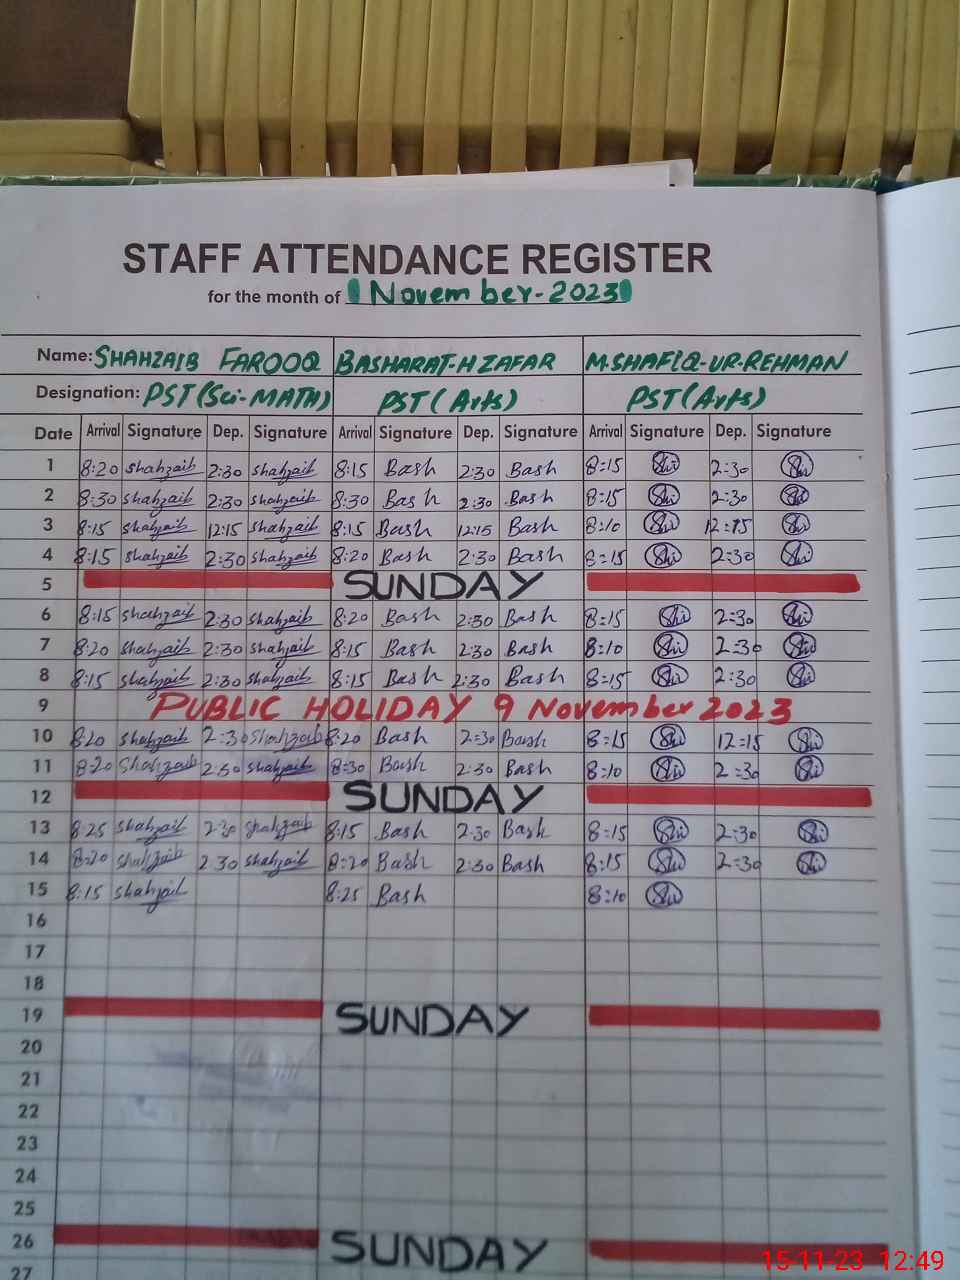 STAFF ATTENDANCE REGISTER
for the month of November-2023
Name: SHAHZAIB FAROOQ BASHARAT-H ZAFAR M.SHAFIQ-UR-REHMAN
Designation: PST (Sci-MATH) PST (Arts) PST (Arts)
Date Arrival Signature Dep. Signature Arrival Signature Dep. Signature Arrival Signature Dep. Signature
1 8:20 shahzaib 2:30 shahzaib 8:15 Bash 2:30 Bash 8=15 2=30
2 8:30 shahzaib 2:30 shahzaib 8:30 Bash 2:30 Bash 8=15 2=30
3 8:15 shahzaib 12:15 shahzaib 8:15 Bash 12:15 Bash 8=10 12=15
4 8:15 shahzaib 2:30 shahzaib 8:20 Bash 2:30 Bash 8=15 2=30
5 SUNDAY
6 8:15 shahzaib 2:30 shahzaib 8:20 Bash 2:30 Bash 8=15 2=30
7 8:20 shahzaib 2:30 shahzaib 8:15 Bash 2:30 Bash 8=10 2=30
8 8:15 shahzaib 2:30 shahzaib 8:15 Bash 2:30 Bash 8=15 2=30
9 PUBLIC HOLIDAY 9 November 2023
10 8:20 shahzaib 2:30 shahzaib 8:20 Bash 2:30 Bash 8=15 12=15
11 8:20 shahzaib 2:30 shahzaib 8:30 Bash 2:30 Bash 8=10 2=30
12 SUNDAY
13 8:25 shahzaib 2:30 shahzaib 8:15 Bash 2:30 Bash 8=15 2=30
14 8:20 shahzaib 2:30 shahzaib 8:20 Bash 2:30 Bash 8=15 2=30
15 8:15 shahzaib 8:25 Bash 8=10
16
17
18
19 SUNDAY
20
21
22
23
24
25
26 SUNDAY
27
15-11-23 12:49